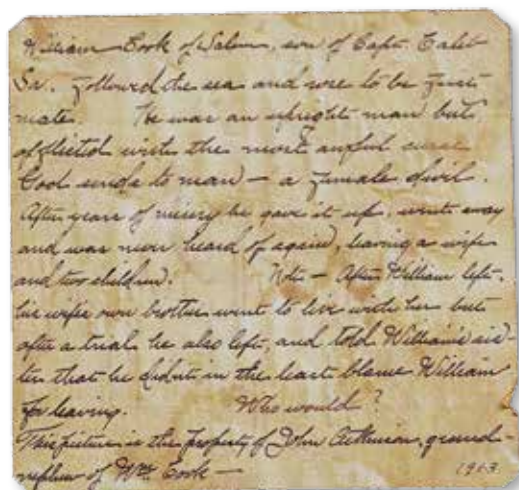 William Cook of Salem, son of Capt. Caleb
Sr. followed the sea and rose to be first
mate. He was an upright man but
afflicted with the most awful curse
God sends to man — a female devil.
After years of misery he gave it up, went away
and was never heard of again, leaving a wife
and two children. Note — After William left,
his wife's own brother went to live with her but
after a trial he also left, and told William's sis-
ter that he didn't in the least blame William
for leaving. Who would?
This picture is the property of John Atkinson, grand-
nephew of Wm. Cook —